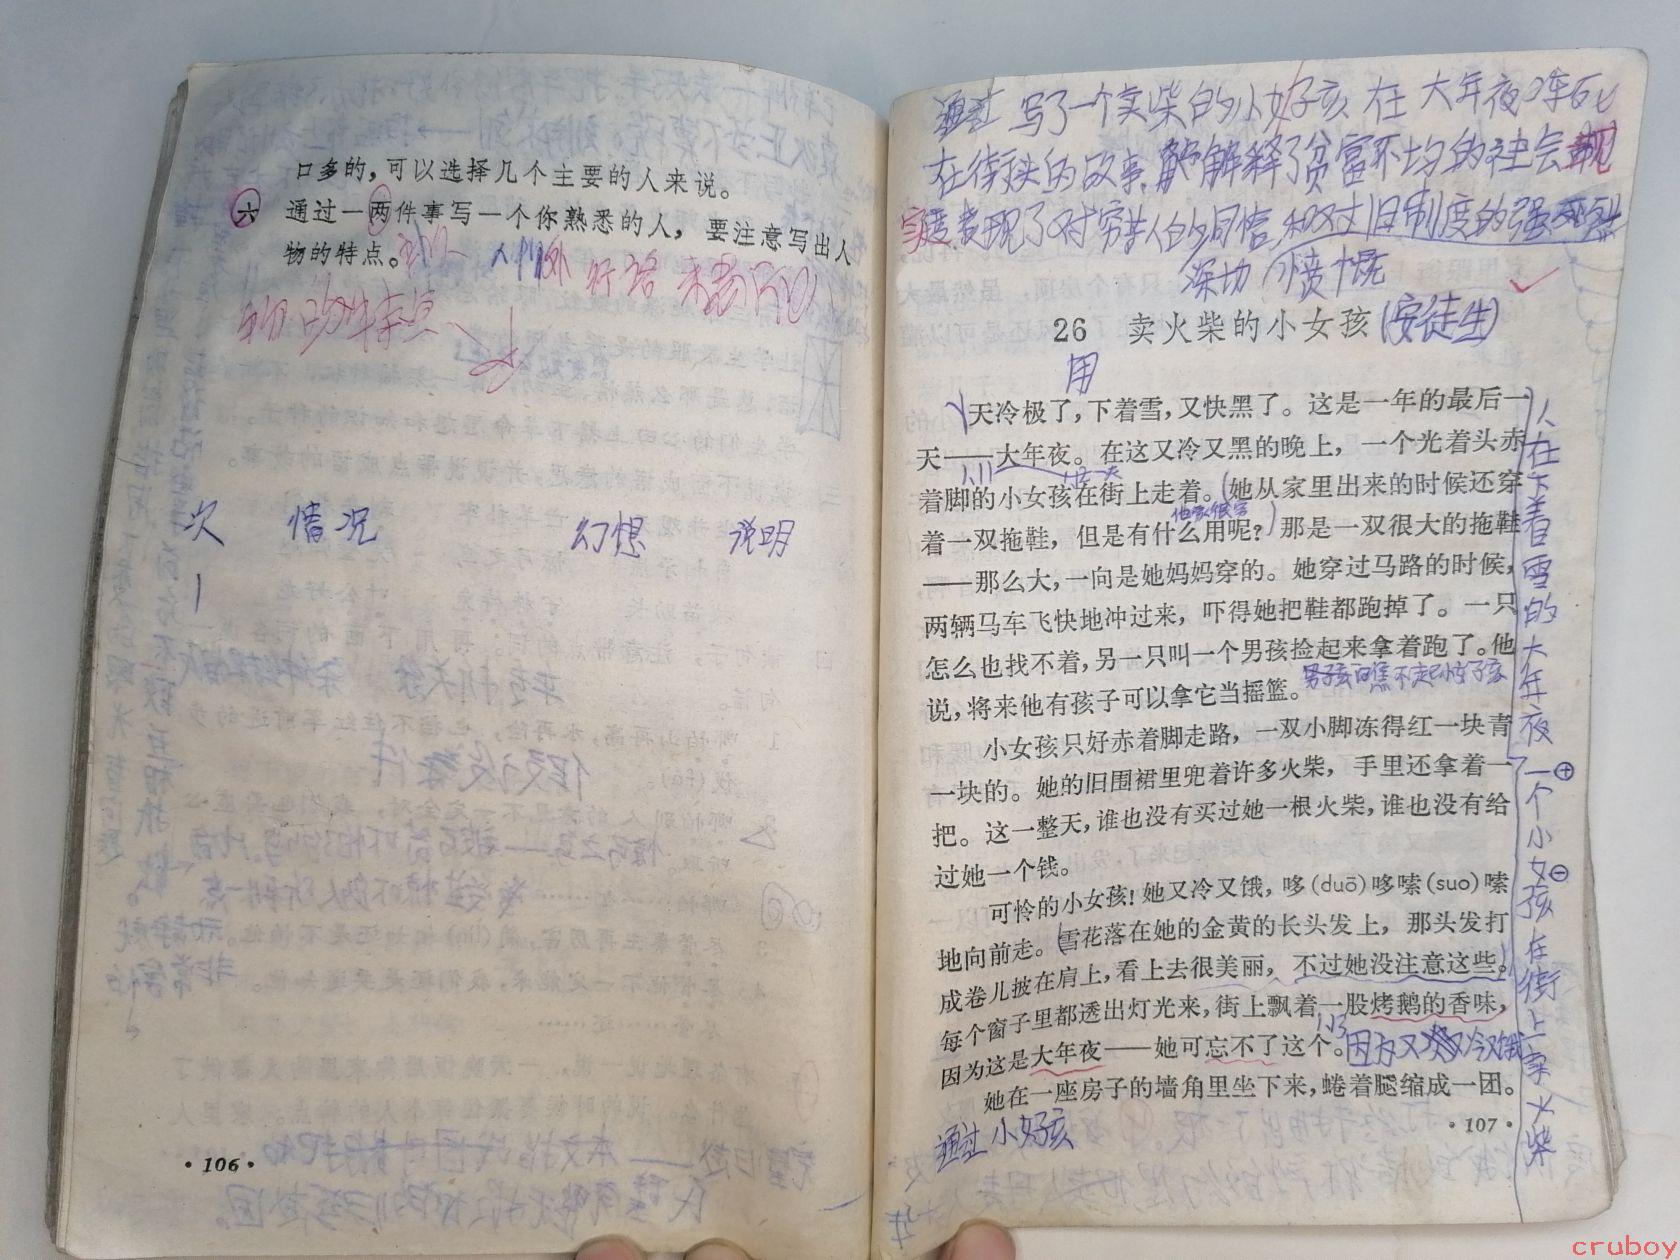 口多的，可以选择几个主要的人来说。
六 通过一两件事写一个你熟悉的人，要注意写出人
物的特点。
的特点
次 情况 幻想 说明
1
·106·
通过写了一个卖柴的小女孩在大年夜冻死
在街头的故事，解释了贫富不均的社会现
实，表现了对穷苦人的同情，和对旧制度的强烈
深切 愤慨
26 卖火柴的小女孩（安徒生）
用
天冷极了，下着雪，又快黑了。这是一年的最后一
天——大年夜。在这又冷又黑的晚上，一个光着头赤
着脚的小女孩在街上走着。她从家里出来的时候还穿
他家很穷
着一双拖鞋，但是有什么用呢？那是一双很大的拖鞋
——那么大，一向是她妈妈穿的。她穿过马路的时候，
两辆马车飞快地冲过来，吓得她把鞋都跑掉了。一只
怎么也找不着，另一只叫一个男孩捡起来拿着跑了。他
说，将来他有孩子可以拿它当摇篮。
小女孩只好赤着脚走路，一双小脚冻得红一块青
一块的。她的旧围裙里兜着许多火柴，手里还拿着一
把。这一整天，谁也没有买过她一根火柴，谁也没有给
过她一个钱。
可怜的小女孩！她又冷又饿，哆(duō)哆嗦(suo)嗦
地向前走。雪花落在她的金黄的长头发上，那头发打
成卷儿披在肩上，看上去很美丽，不过她没注意这些。
每个窗子里都透出灯光来，街上飘着一股烤鹅的香味，
因为这是大年夜——她可忘不了这个。因为又冷又饿
她在一座房子的墙角里坐下来，蜷着腿缩成一团。
·107·
通过小女孩
人在下着雪的大年夜一个小女孩在街上卖火柴
cruboy